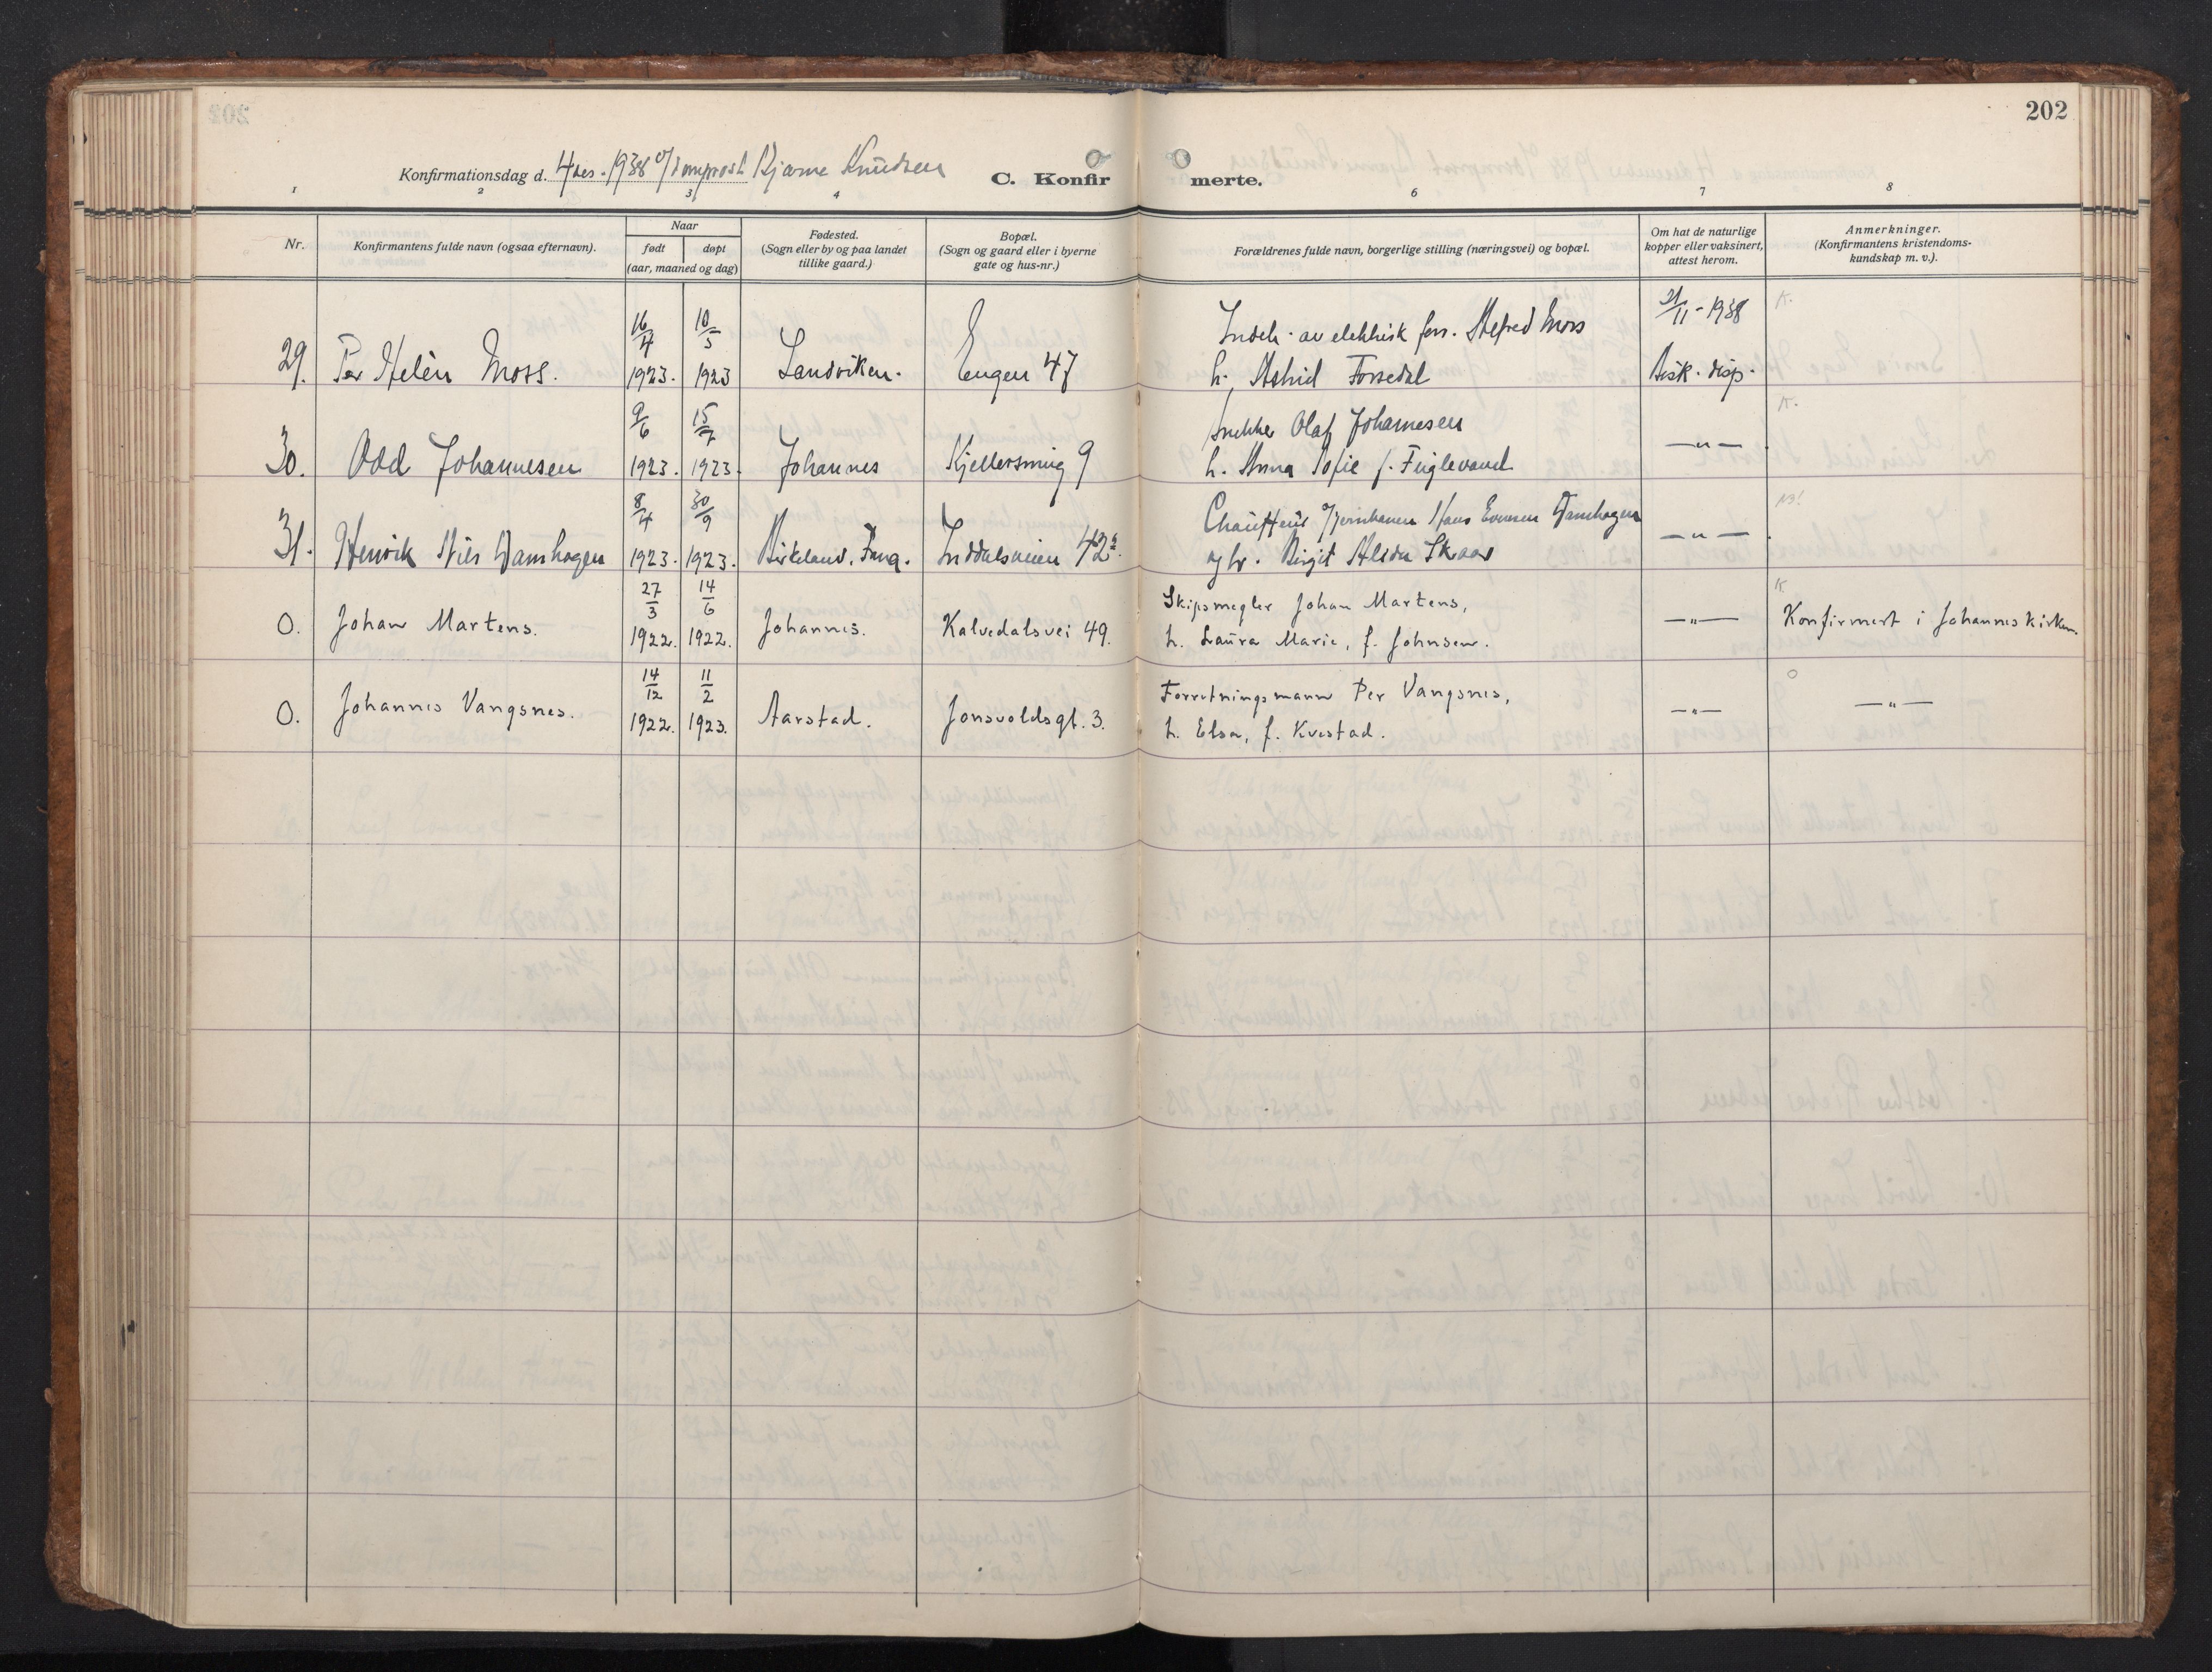 202
Konfirmationsdag d. 4 des. 1938 v/ Domprost Bjarne Knudsen
C. Konfirmerte.
1 2 3 4 6 7 8
Nr.
Konfirmantens fulde navn (ogsaa efternavn).
Naar
født døpt
(aar, maaned og dag)
Fødested.
(Sogn eller by og paa landet
tillike gaard.)
Bopæl.
(Sogn og gaard eller i byerne
gate og hus-nr.)
Forældrenes fulde navn, borgerlige stilling (næringsvei) og bopæl.
Om hat de naturlige
kopper eller vaksinert,
attest herom.
Anmerkninger.
(Konfirmantens kristendoms-
kundskap m. v.).
16/4 10/5 av elektrisk forr. Alfred Moss 21/11-1938 K.
29. Per Helén Moss. 1923. 1923 Sandviken. Engen 47 h. Astrid Forsedal Bisk. disp.
9/6 15/7 Snekker Olaf Johannesen K.
30. Odd Johannesen 1923. 1923. Johannes Kjellersmug 9 h. Anna Sofie f. Fuglevand —"—
8/4 30/9 Chauffeur Hans Damhagen
31. Henrik Nils Damhagen 1923. 1923. Birkeland, Inddalsveien og h. Birgit Skaar —"—
27/3 14/6 Skipsmegler Johan Martens, K
0. Johan Martens. 1922. 1922. Johannes. Kalvedalsvei 49. h. Laura Marie, f. Johnsen. —"— Konfirmert i Johanneskirken.
14/12 11/2 Forretningsmann Per Vangsnes, O
0. Johannes Vangsnes. 1922. 1923. Aarstad. Jonsvoldsgt. 3. h. Elsa, f. Kvestad. —"— —"—